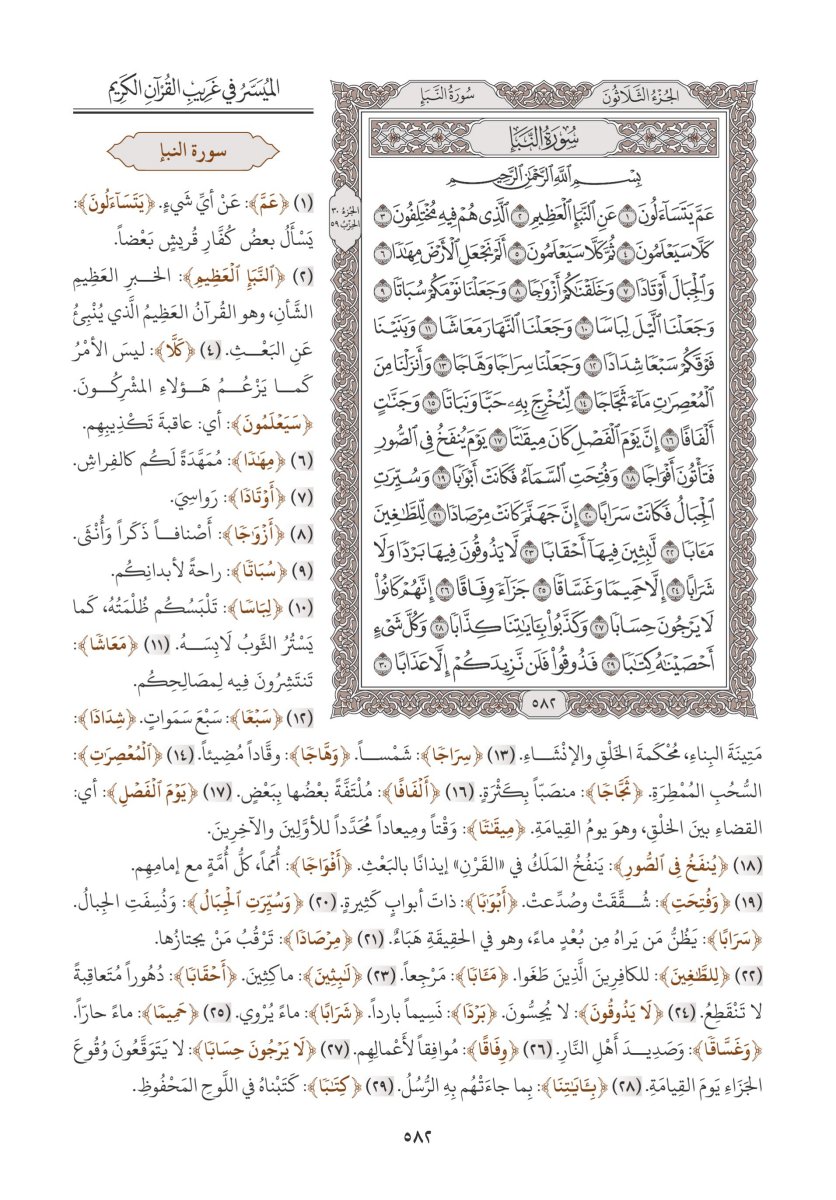 الميسر في غريب القرآن الكريم
الجزء الثلاثون
سورة النبإ
سُورَةُ النَّبَإِ
بِسْمِ اللَّهِ الرَّحْمَٰنِ الرَّحِيمِ
عَمَّ يَتَسَآءَلُونَ ١ عَنِ ٱلنَّبَإِ ٱلْعَظِيمِ ٢ ٱلَّذِى هُمْ فِيهِ مُخْتَلِفُونَ ٣
كَلَّا سَيَعْلَمُونَ ٤ ثُمَّ كَلَّا سَيَعْلَمُونَ ٥ أَلَمْ نَجْعَلِ ٱلْأَرْضَ مِهَٰدًا ٦
وَٱلْجِبَالَ أَوْتَادًا ٧ وَخَلَقْنَٰكُمْ أَزْوَٰجًا ٨ وَجَعَلْنَا نَوْمَكُمْ سُبَاتًا ٩
وَجَعَلْنَا ٱلَّيْلَ لِبَاسًا ١٠ وَجَعَلْنَا ٱلنَّهَارَ مَعَاشًا ١١ وَبَنَيْنَا
فَوْقَكُمْ سَبْعًا شِدَادًا ١٢ وَجَعَلْنَا سِرَاجًا وَهَّاجًا ١٣ وَأَنزَلْنَا مِنَ
ٱلْمُعْصِرَٰتِ مَآءً ثَجَّاجًا ١٤ لِّنُخْرِجَ بِهِۦ حَبًّا وَنَبَاتًا ١٥ وَجَنَّٰتٍ
أَلْفَافًا ١٦ إِنَّ يَوْمَ ٱلْفَصْلِ كَانَ مِيقَٰتًا ١٧ يَوْمَ يُنفَخُ فِى ٱلصُّورِ
فَتَأْتُونَ أَفْوَاجًا ١٨ وَفُتِحَتِ ٱلسَّمَآءُ فَكَانَتْ أَبْوَٰبًا ١٩ وَسُيِّرَتِ
ٱلْجِبَالُ فَكَانَتْ سَرَابًا ٢٠ إِنَّ جَهَنَّمَ كَانَتْ مِرْصَادًا ٢١ لِّلطَّٰغِينَ
مَـَٔابًا ٢٢ لَّٰبِثِينَ فِيهَآ أَحْقَابًا ٢٣ لَّا يَذُوقُونَ فِيهَا بَرْدًا وَلَا
شَرَابًا ٢٤ إِلَّا حَمِيمًا وَغَسَّاقًا ٢٥ جَزَآءً وِفَاقًا ٢٦ إِنَّهُمْ كَانُوا۟
لَا يَرْجُونَ حِسَابًا ٢٧ وَكَذَّبُوا۟ بِـَٔايَٰتِنَا كِذَّابًا ٢٨ وَكُلَّ شَىْءٍ
أَحْصَيْنَٰهُ كِتَٰبًا ٢٩ فَذُوقُوا۟ فَلَن نَّزِيدَكُمْ إِلَّا عَذَابًا ٣٠
٥٨٢
الجزء ٣٠
الحزب ٥٩
سورة النبإ
(١) ﴿عَمَّ﴾: عَنْ أيِّ شَيءٍ. ﴿يَتَسَآءَلُونَ﴾:
يَسْأَلُ بعضُ كُفَّارِ قُريشٍ بَعْضاً.
(٢) ﴿ٱلنَّبَإِ ٱلْعَظِيمِ﴾: الخبرِ العَظِيمِ
الشَّأنِ، وهو القُرآنُ العَظِيمُ الَّذي يُنْبِئُ
عَنِ البَعْـثِ. (٤) ﴿كَلَّا﴾: ليسَ الأمْرُ
كَمـا يَزْعُـمُ هَـؤلاءِ المشْرِكُـونَ.
﴿سَيَعْلَمُونَ﴾: أي: عاقبةَ تَكْذِيبِهِم.
(٦) ﴿مِهَٰدًا﴾: مُمَهَّدَةً لَكُم كالفِراشِ.
(٧) ﴿أَوْتَادًا﴾: رَواسِيَ.
(٨) ﴿أَزْوَٰجًا﴾: أَصْنافـاً ذَكَراً وَأُنْثَى.
(٩) ﴿سُبَاتًا﴾: راحةً لأبدانِكُم.
(١٠) ﴿لِبَاسًا﴾: تَلْبَسُكُم ظُلْمَتُهُ، كَما
يَسْتُرُ الثَّوبُ لَابِسَـهُ. (١١) ﴿مَعَاشًا﴾:
تَنتَشِرُونَ فيه لِمصَالِحِكُم.
(١٢) ﴿سَبْعًا﴾: سَبْعَ سَمَواتٍ. ﴿شِدَادًا﴾:
مَتِينَةَ البِناءِ، مُحْكَمةَ الخَلْقِ والإنْشَـاءِ. (١٣) ﴿سِرَاجًا﴾: شَمْسـاً. ﴿وَهَّاجًا﴾: وقَّاداً مُضِيئاً. (١٤) ﴿ٱلْمُعْصِرَٰتِ﴾:
السُّحُبِ المُمْطِرَةِ. ﴿ثَجَّاجًا﴾: منصَبّاً بِكَثْرَةٍ. (١٦) ﴿أَلْفَافًا﴾: مُلْتَفَّةً بعْضُها بِبَعْضٍ. (١٧) ﴿يَوْمَ ٱلْفَصْلِ﴾: أي:
القضاءِ بينَ الخلْقِ، وهوَ يومُ القِيامَةِ. ﴿مِيقَٰتًا﴾: وَقْتاً ومِيعاداً مُحَدَّداً للأوَّلِينَ والآخِرِينَ.
(١٨) ﴿يُنفَخُ فِى ٱلصُّورِ﴾: يَنفُخُ المَلَكُ في «القَرْنِ» إيذانًا بالبَعْثِ. ﴿أَفْوَاجًا﴾: أُمَماً، كلُّ أُمَّةٍ مع إمامِهِم.
(١٩) ﴿وَفُتِحَتِ﴾: شُـقِّقَتْ وصُدِّعتْ. ﴿أَبْوَٰبًا﴾: ذاتَ أبوابٍ كثِيرةٍ. (٢٠) ﴿وَسُيِّرَتِ ٱلْجِبَالُ﴾: وَنُسِفَتِ الجِبالُ.
﴿سَرَابًا﴾: يَظُنُّ مَن يَراهُ مِن بُعْدٍ ماءً، وهو في الحقِيقَةِ هَبَاءٌ. (٢١) ﴿مِرْصَادًا﴾: تَرْقُبُ مَنْ يجتازُها.
(٢٢) ﴿لِلطَّٰغِينَ﴾: للكافِرِينَ الَّذِينَ طَغَوا. ﴿مَـَٔابًا﴾: مَرْجِعاً. (٢٣) ﴿لَٰبِثِينَ﴾: ماكِثِينَ. ﴿أَحْقَابًا﴾: دُهُوراً مُتَعاقِبةً
لا تَنْقَطِعُ. (٢٤) ﴿لَا يَذُوقُونَ﴾: لا يُحِسُّونَ. ﴿بَرْدًا﴾: نَسِيماً بارداً. ﴿شَرَابًا﴾: ماءً يُرْوِي. (٢٥) ﴿حَمِيمًا﴾: ماءً حارّاً.
﴿وَغَسَّاقًا﴾: وَصَدِيـدَ أَهْلِ النَّارِ. (٢٦) ﴿وِفَاقًا﴾: مُوافِقاً لأَعْمالِهِم. (٢٧) ﴿لَا يَرْجُونَ حِسَابًا﴾: لا يَتَوَقَّعُونَ وُقُوعَ
الجَزَاءِ يَومَ القِيامَةِ. (٢٨) ﴿بِـَٔايَٰتِنَا﴾: بِما جاءَتْهُم بِهِ الرُّسُلُ. (٢٩) ﴿كِتَٰبًا﴾: كَتَبْناهُ في اللَّوحِ المَحْفُوظِ.
٥٨٢